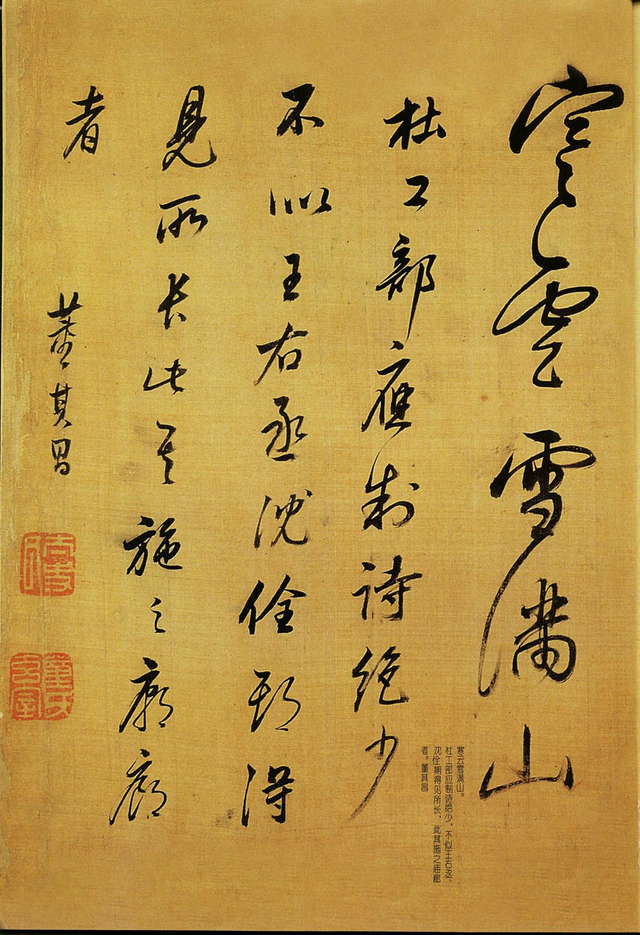 寒雲雪滿山
杜工部應制詩絕少
不似王右丞沈佺期得
見所長此其施之廟廊
者
董其昌
董氏玄宰
寒云雪满山。
杜工部应制诗绝少，不似王右丞、
沈佺期得见所长，此其施之庙廊
者。董其昌